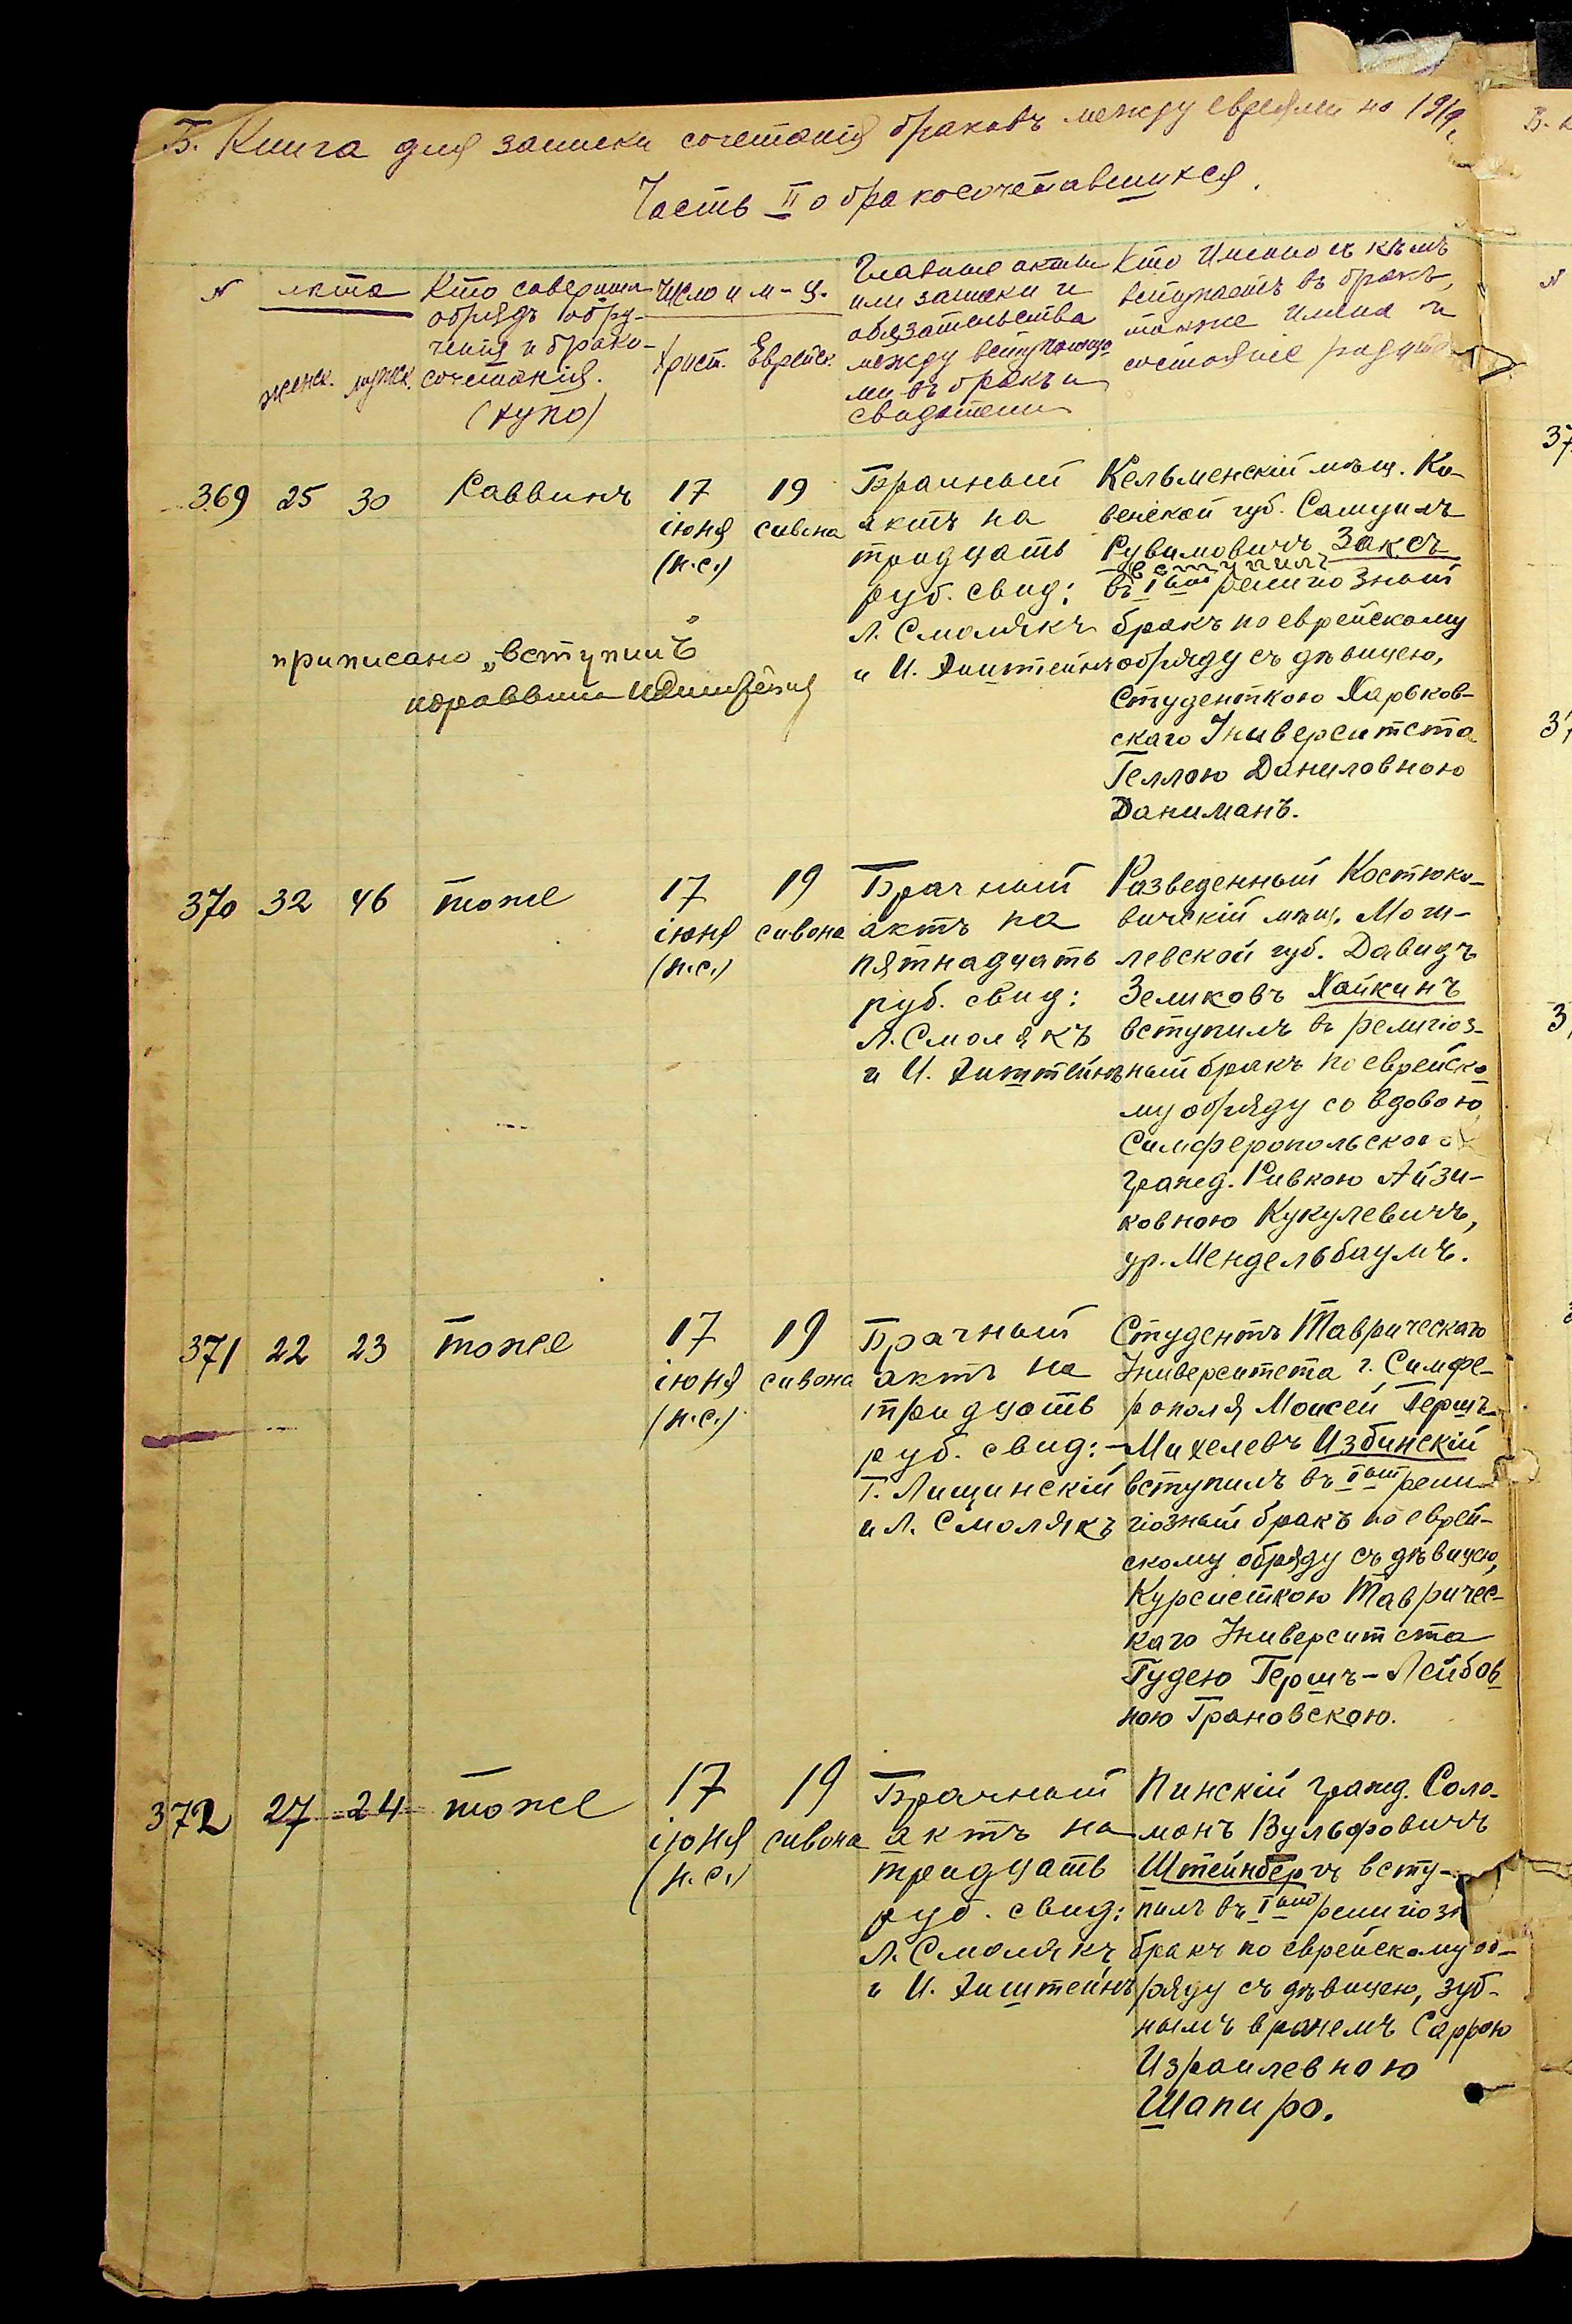 Б. Книга для записки сочетанія браковъ между евреями на 1919
Часть II о бракосочетавшихся.
N
лѣта
женск. мужск.
Кто совершил
обрядъ обру-
ченія и брако-
сочетанія.
(хупо)
Число и м-ц.
Христ. Еврейск.
Главные акты
или записки и
обязательства
между вступающи
ми въ бракъ и
свидѣтели
Кто именно съ кѣмъ
вступаетъ въ бракъ,
также имена и
состояніе родите
369 25 30 Раввинъ
17
іюня
(н.с.)
19
сивона
Брачный
актъ на
тридцать
руб. свид:
Л. Смолякъ
и И. Эпштейнъ
Кельменскій мѣщ. Ко-
венской губ. Самуилъ
Рувимовичъ Заксъ
вступилъ
въ Iый религіозный
бракъ по еврейскому
обряду съ дѣвицею,
Студенткою Харьков-
скаго Университета
Геллою Даниловною
Даниманъ.
приписано „вступилъ"
370 32 46 тоже
17
іюня
(н.с.)
19
сивона
Брачный
актъ на
пятнадцать
руб. свид:
Л. Смолякъ
и И. Эпштейнъ
Разведенный Костюко-
вичскій мѣщ. Моги-
левской губ. Давидъ
Зеликовъ Хайкинъ
вступилъ въ религіоз-
ный бракъ по еврейско-
му обряду со вдовою
Симферопольскою
гражд. Ривкою Айзи-
ковною Кукулевичъ,
ур. Мендельбаумъ.
371 22 23 тоже
17
іюня
(н.с.)
19
сивона
Брачный
актъ на
тридцать
руб. свид:
Г. Лищинскій
и Л. Смолякъ
Студентъ Таврическаго
Университета г. Симфе-
рополя Моисей Гершъ-
Михелевъ Избинскій
вступилъ въ Iый рели-
гіозный бракъ по еврей-
скому обряду съ дѣвицею,
Курсисткою Тавричес-
каго Университета
Гудею Гершъ-Лейбов
ною Грановскою.
372 27 24 тоже
17
іюня
(н.с.)
19
сивона
Брачный
актъ на
тридцать
руб. свид:
Л. Смолякъ
и И. Эпштейнъ
Пинскій гражд. Соло-
монъ Вульфовичъ
Штейнбергъ всту-
пилъ въ Iый религіозн
бракъ по еврейскому об-
ряду съ дѣвицею, зуб-
нымъ врачемъ Саррою
Израилевною
Шапиро.